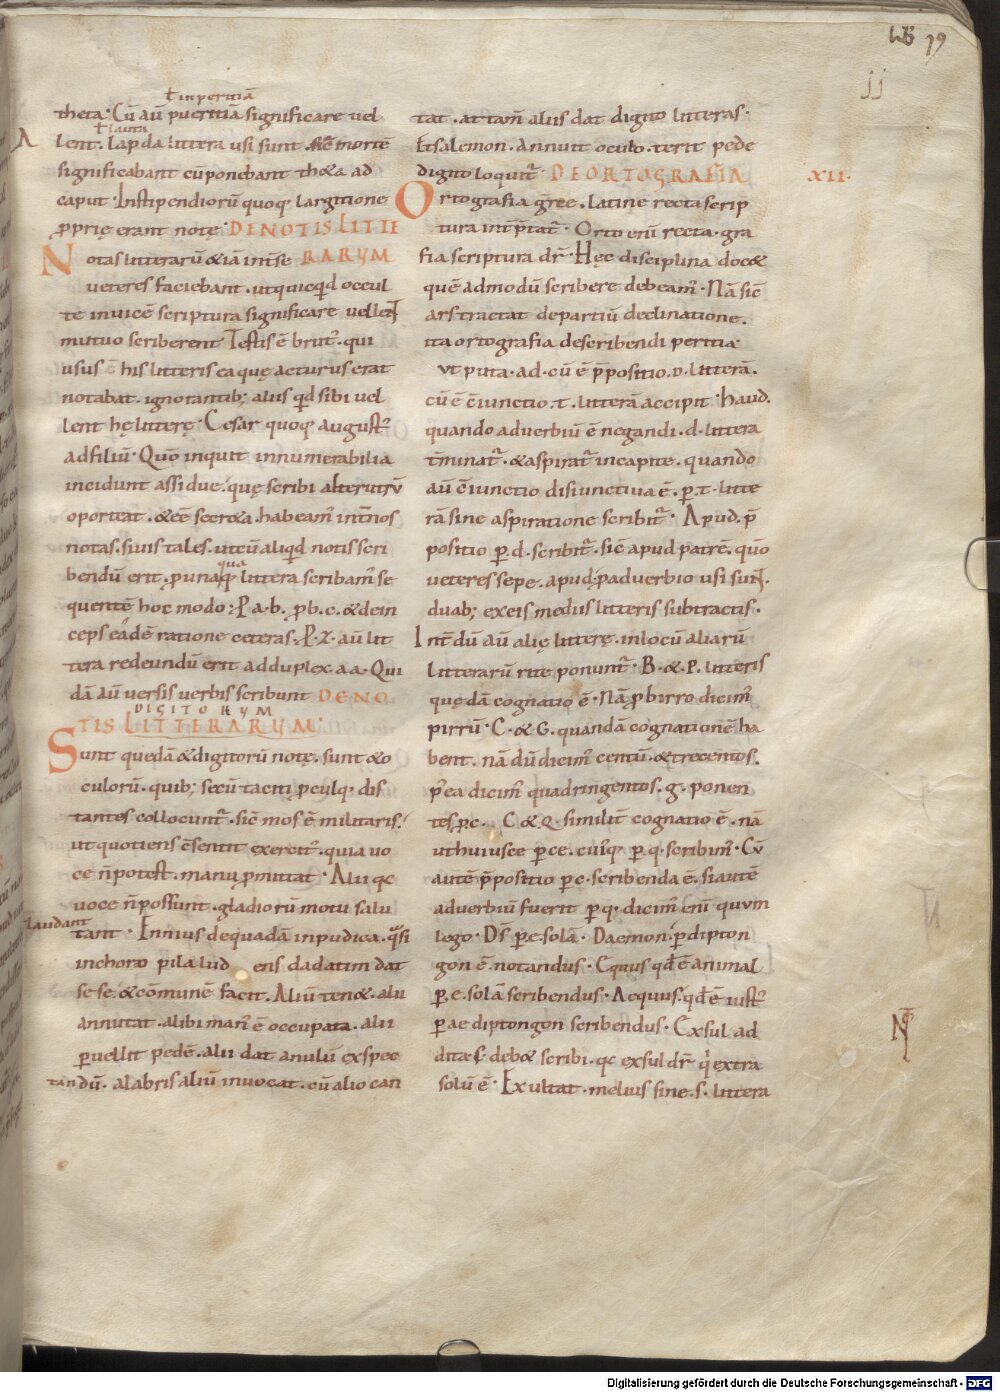 WB 19
jj
ł inperitiā
theta · Cū aū pueritiā significare uel
ł lauta
lent . lapda littera usi sunt . morte
significabant cū ponebant th&a ad
caput · Instipendiorū quoq; largitione
ꝓprię erant notę · DENOTIS LITTE
Notas litterarū &iā int̄ se RARVM
ueteres faciebant . ut quicq̄d occul
te inuicē scriptura significare uellent
mutuo scriberent Testis ē brut᷒ . qui
usus ē his litteris ea quę acturus erat
notabat . ignorantib; aliis qd̄ sibi uel
lent hę litterę · Cesar quoq; august᷒
ad filiū · Quō inquit innumerabilia
incidunt assidue . quę scribi alterutrū
oporteat . &eē secr&a . habeam᷒ int̄ nos
notas . siuis tales . ut cū aliqd̄ notis scri
qua
bendū erit . ꝓ unaq; littera scribam᷒ se
quentē hoc modo : P a . b . ꝓ b . c . & dein
ceps eadē ratione ceteras : P . z . aū lit
tera redeundū erit ad duplex . a a · Qui
dā aū uersis uerbis scribunt DENO
DIGITORVM
TIS LITTERARVM ·
Sunt quedā & digitorū notę . sunt & o
culorū . quib; secū taciti ꝓculq; dis
tantes collocunt᷒ . sic̄ mos ē militaris .
ut quotiens c̄sentit exercit᷒ . quia uo
ce n̄ potest . manu ꝓmittat · Alii qc
uoce n̄ possunt . gladiorū motu salu
laudant
tant · Ennius dequadā inpudica . q̄si
inchoro pila lud ens dadatim dat
se se . & cōmunē facit . Aliū ten& . alii
annutat . alibi man᷒ ē occupata . alii
ꝑuellit pedē . alii dat anulū exspec
tandū . alabris aliū inuocat . cū alio can
tat . at tam̄ aliis dat digito litteras ·
Et salemon . annuit oculo . terit pede
digito loquit᷒ DEORTOGRAFIA
XII ·
Ortografia gręce . latine recta scrip
tura int̄ p̄tat᷒ · Orto enī recta . gra
fia scriptura dr̄ · Hęc disciplina doc&
quē admodū scribere debeam᷒ · Nā sic̄
ars tractat departiū declinatione .
ita ortografia describendi peritia·
ut puta . ad . cū ē p̄positio . d . litterā .
cū ē c̄iunctio . t . litterā accipit · haud .
quando aduerbiū ē negandi . d . littera
t̄minat᷒ . & aspirat᷒ incapite . quando
aū c̄iunctio disiunctiua ē . ꝑ . t . litte
rā sine aspiratione scribit᷒ · Apud . p̄
positio ꝑ . d . scribit᷒ . sic̄ apud patrē . quō
ueteres sepe . apud . ꝓ aduerbio usi sunt .
duab; ex eis mediis litteris subtractis .
Int̄ dū aū alię litterę . inlocū aliarū
litterarū rite ponunt᷒ · B . & . P . litteris
quędā cognatio ē · Nā ꝓ birro dicim᷒
pirrū · C . & G . quandā cognationē ha
bent . nā dū dicim᷒ centū . & trecentos .
p̄ ea dicim᷒ quadringentos . g . ponen
tes ꝓ . c . C & . Q . similit̄ cognatio ē . nā
ut huiusce ꝑ ce . cuiq; ꝑ . q . scribim᷒ · Cū
autē p̄positio ꝑ c . scribenda ē . si autē
aduerbiū fuerit ꝑ q . dicim᷒ enī quum
lego · Ds̄ ꝑ e . solā . Daemon . ꝑ dipton
gon ē . notandus · Equus . qd̄ ē animal
ꝑ . e . solā scribendus · Aequus . qd̄ ē iust᷒
ꝑ ae diptongon scribendus · Exsul ad
dita . s . deb& scribi . qc exsul dr̄ q̄ extra
solū ē · Exultat . melius sine . s . littera
Digitalisierung gefördert durch die Deutsche Forschungsgemeinschaft - DFG